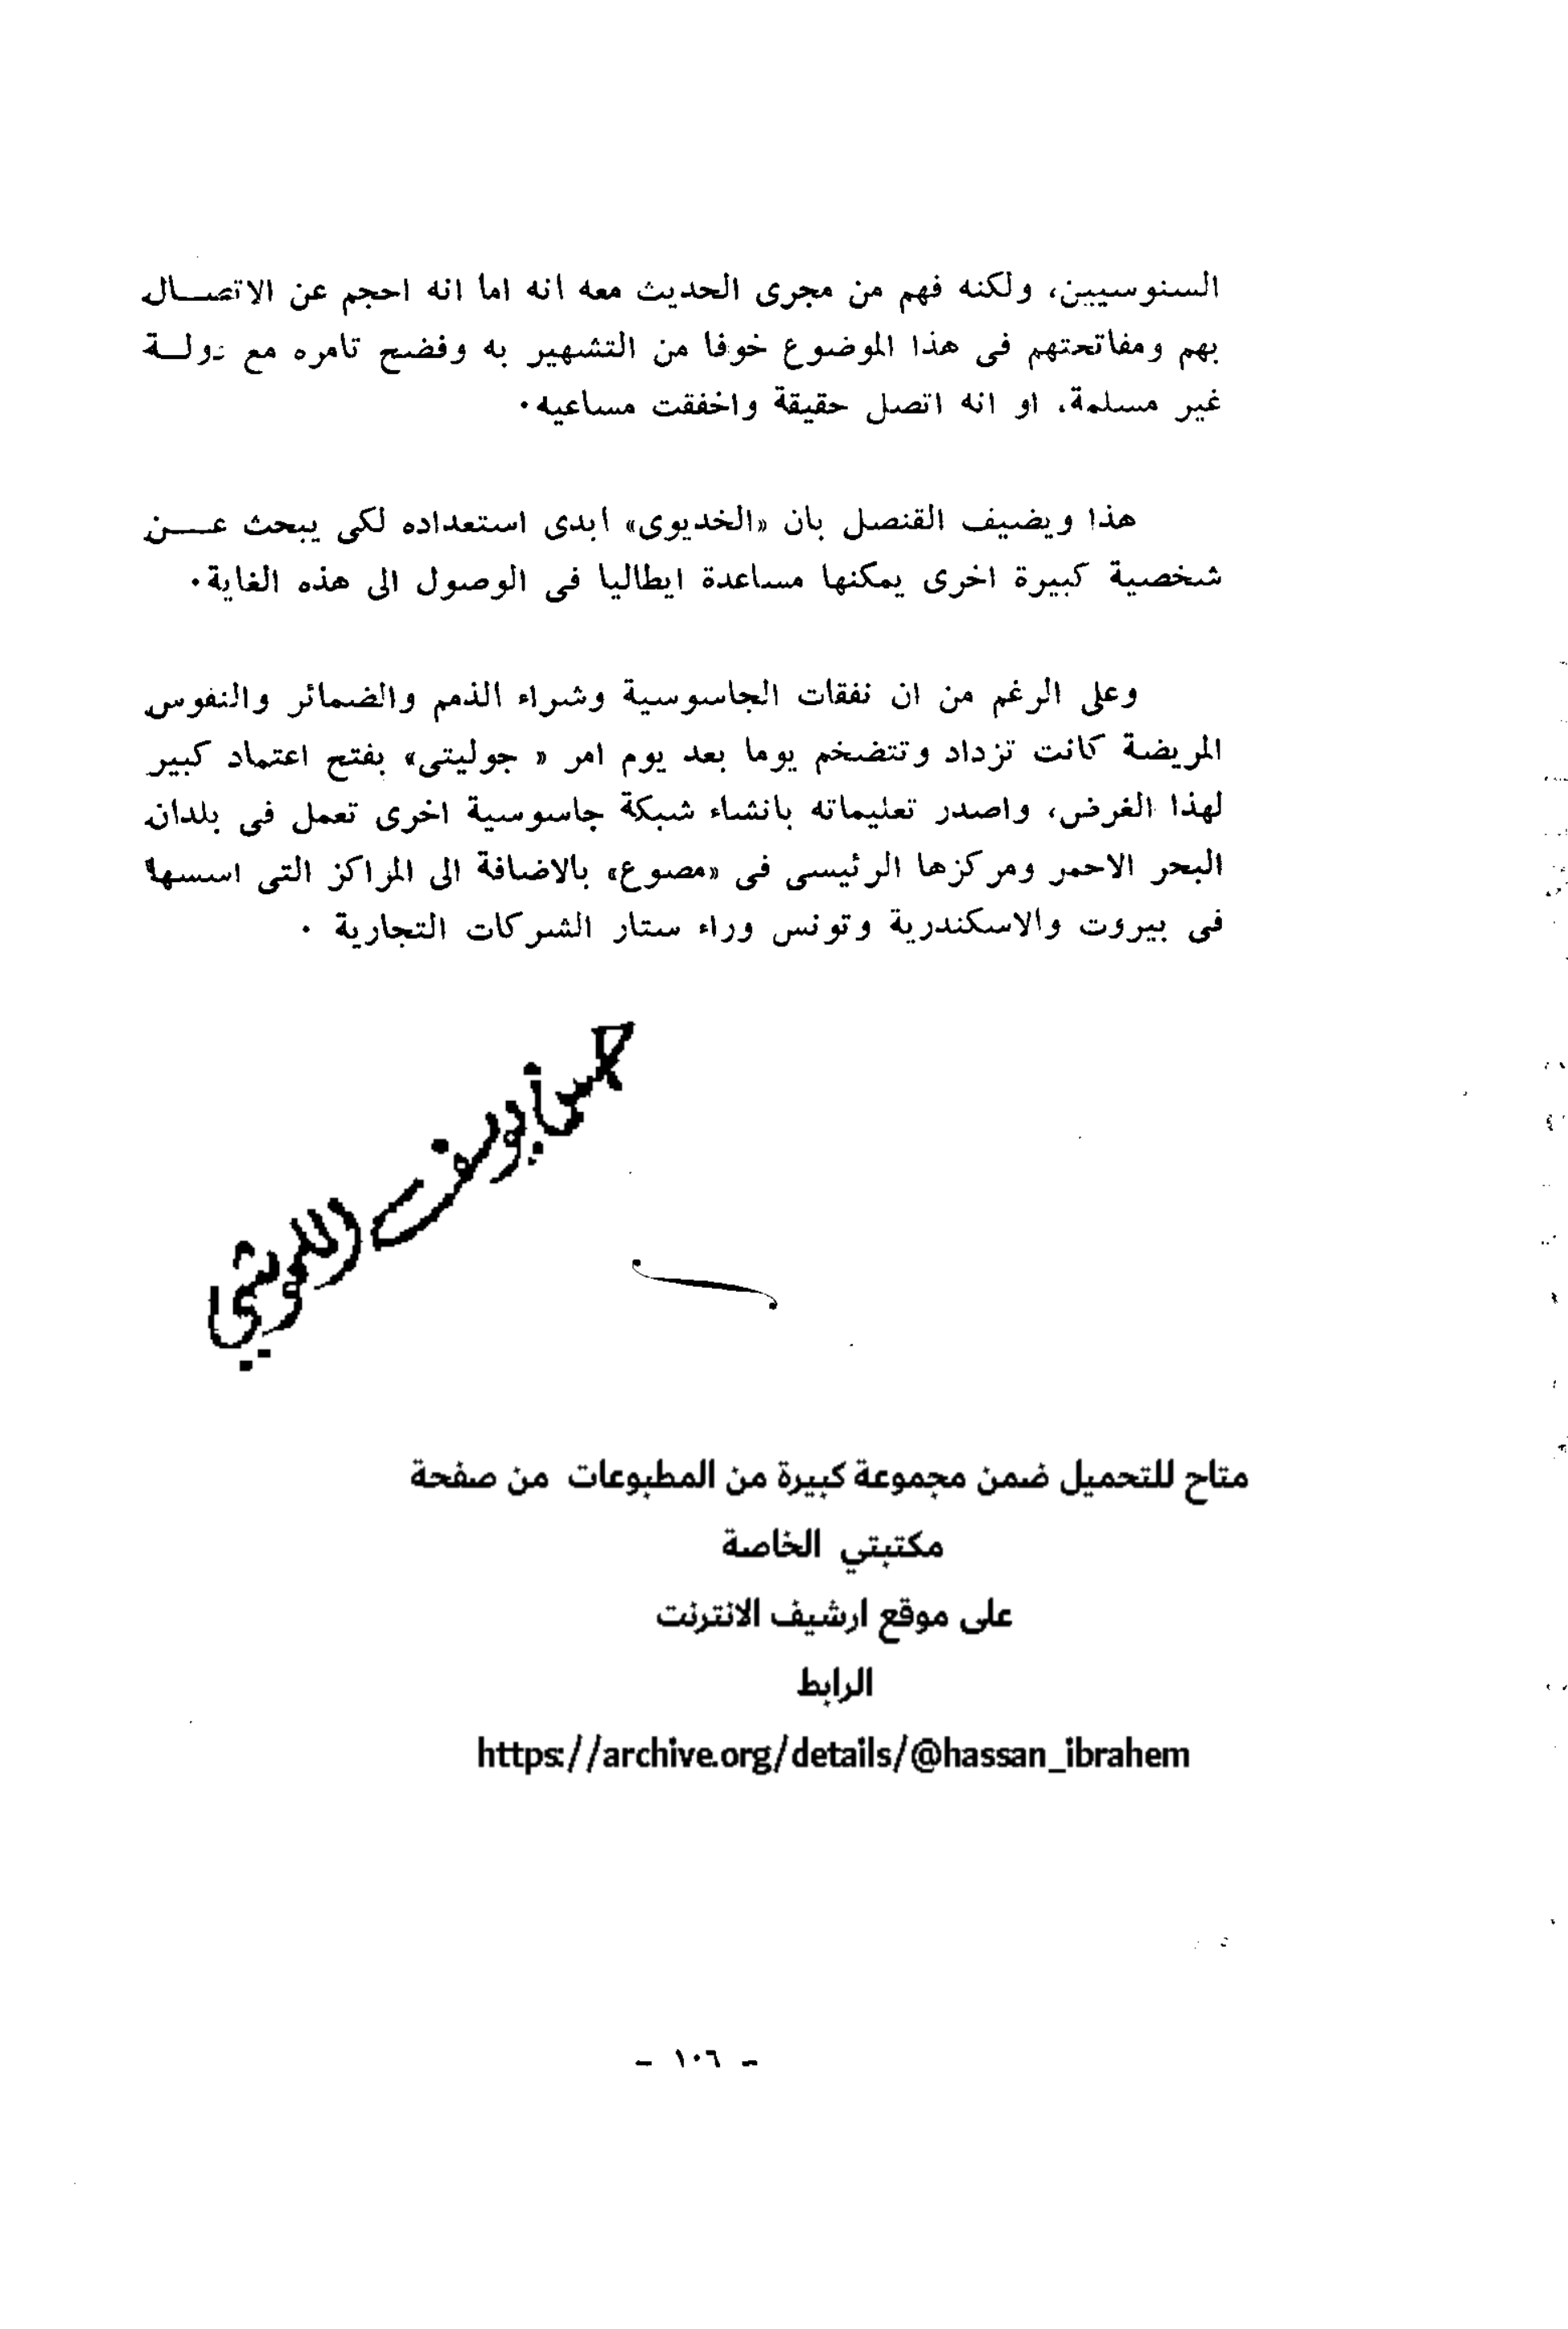 السنوسيين، ولكنه فهم من مجرى الحديث معه انه اما انه احجم عن الاتصـــال
بهم ومفاتحتهم فى هذا الموضوع خوفا من التشهير به وفضح تامره مع دولــة
غير مسلمة، او انه اتصل حقيقة واخفقت مساعيه٠
هذا ويضيف القنصل بان «الخديوى» ابدى استعداده لكى يبحث عـــن
شخصية كبيرة اخرى يمكنها مساعدة ايطاليا فى الوصول الى هذه الغاية٠
وعلى الرغم من ان نفقات الجاسوسية وشراء الذمم والضمائر والنفوس
المريضة كانت تزداد وتتضخم يوما بعد يوم امر « جوليتى» بفتح اعتماد كبير
لهذا الغرض، واصدر تعليماته بانشاء شبكة جاسوسية اخرى تعمل فى بلدان
البحر الاحمر ومركزها الرئيسى فى «مصوع» بالاضافة الى المراكز التى اسسها
فى بيروت والاسكندرية وتونس وراء ستار الشركات التجارية ٠
يوسف
متاح للتحميل ضمن مجموعة كبيرة من المطبوعات من صفحة
مكتبتي الخاصة
على موقع ارشيف الانترنت
الرابط
https://archive.org/details/@hassan_ibrahem
- ١٠٦ -